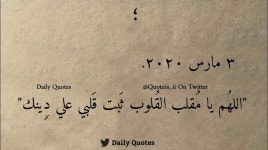 ؛
٣ مارس ٢٠٢٠.
Daily Quotes @Quotess_ii On Twitter
"اللهُم يا مُقلب القُلوب ثَبت قَلبي علي دِينك"
Daily Quotes